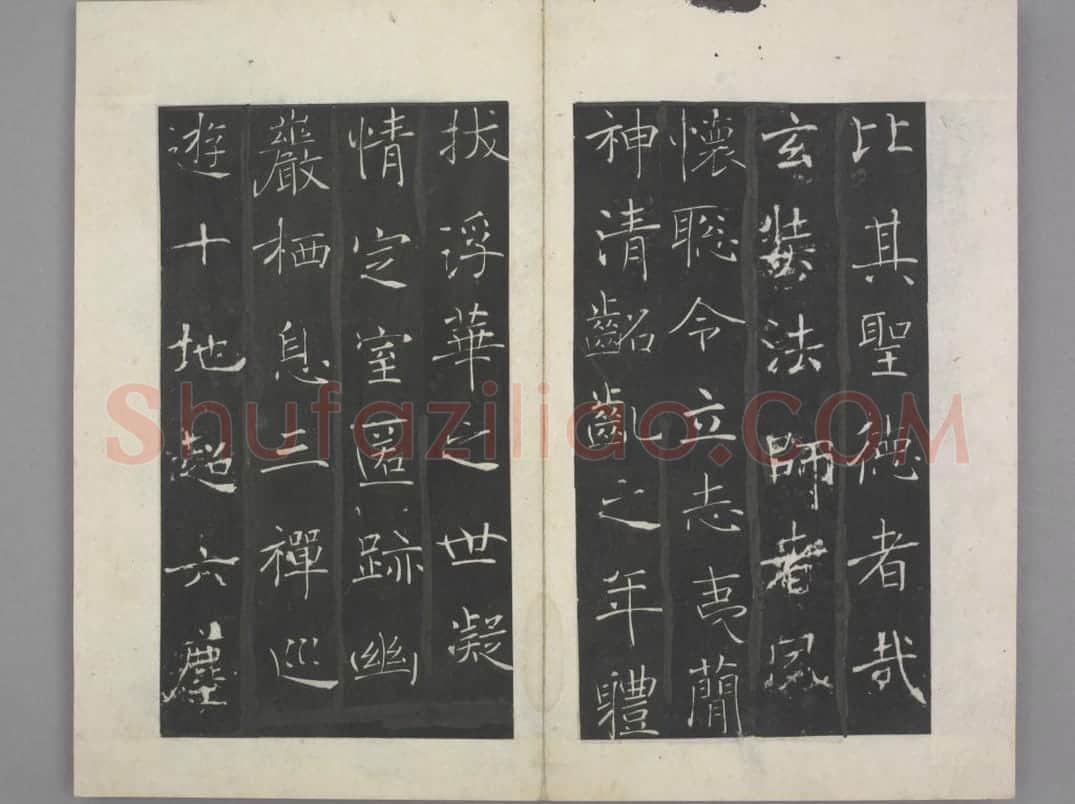 比其聖德者哉
玄奘法師者夙
懷聰令立志夷簡
神清齠齔之年體
拔浮華之世凝
情定室匿跡幽
巖栖息三禪巡
遊十地超六塵
Shufaziliao.COM